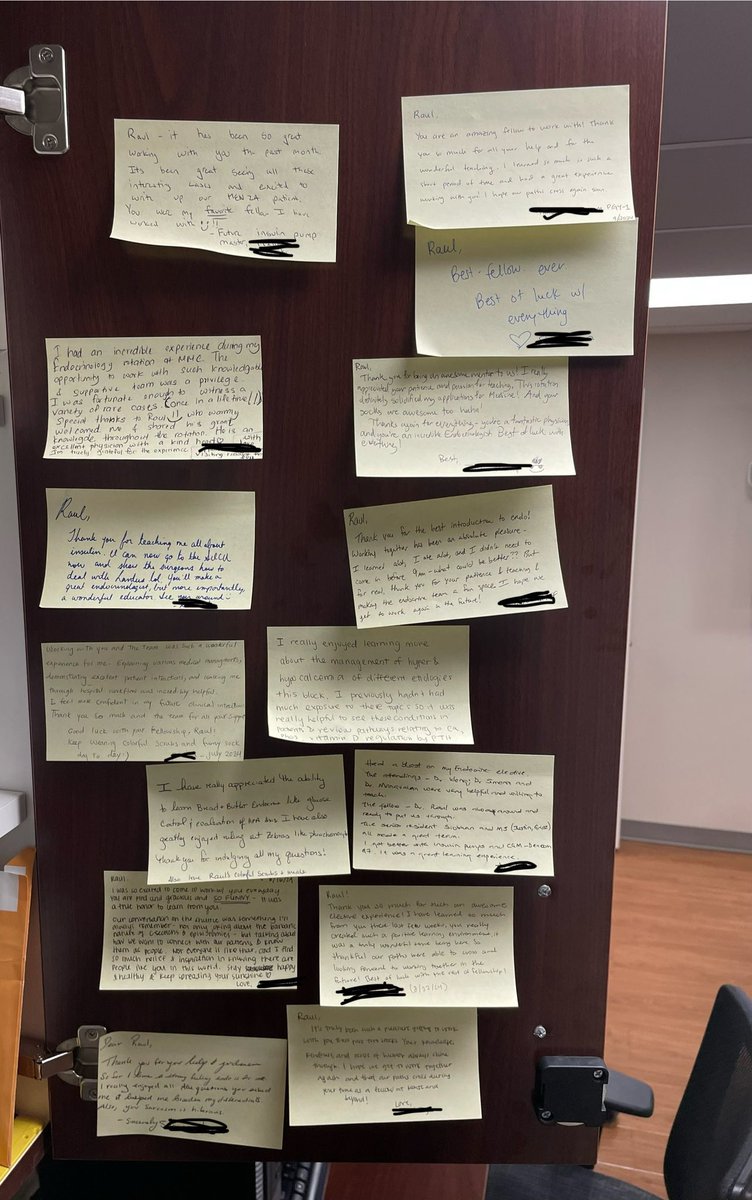 Raul - it has been so great
working with you the past month.
Its been great seeing all these
interesting cases and excited to
write up our MEN2A patient.
You were my favorite fellow I have
worked with !!
- Future insulin pump
master,
Raul,
You are an amazing fellow to work with! Thank
you so much for all your help and for the
wonderful teaching. I learned so much in such a
short period of time and had a great experience
working with you. I hope our paths cross again soon.
PGY-1
Raul,
Best fellow ever
Best of luck w/
everything
I had an incredible experience during my
Endocrinology rotation at MMC. The
opportunity to work with such knowledgable
& supportive team was a privilege.
I was fortunate enough to witness a
variety of rare cases (once in a lifetime!!)
Special thanks to Raul!! who warmly
welcomed me & shared his great
knowledge throughout the rotation. He is an
excellent physician with a kind heart with
I'm truly grateful for the experience
Visiting
Raul,
Thank you for being an awesome mentor to us! I really
appreciated your patience and passion for teaching. This rotation
definitely solidified my applications for Medicine! And your
socks are awesome too haha!
Thanks again for everything - you're a fantastic physician
and you're an incredible Endocrinologist. Best of luck with
everything!
Best,
Raul,
Thank you for teaching me all about
insulin. I can now go to the SICU
now and show the surgeons how to
deal with Lantus lol. You'll make a
great endocrinologist, but more importantly,
a wonderful educator. See you around -
Raul,
Thank you for the best introduction to endo!
Working together has been an absolute pleasure -
I learned alot, I ate alot, and I didn't need to
come in before 9am - what could be better?? But
for real, thank you for your patience & teaching &
making the endocrine team a fun space. I hope we
get to work again in the future!
Working with you and the team was such a wonderful
experience for me. Explaining various medical managements,
demonstrating excellent patient interactions, and walking me
through hospital workflow was incredibly helpful.
I feel more confident in my future clinical
Thank you so much and the team for all your support
Good luck with your fellowship, Raul!
Keep wearing colorful scrubs and funny sock
day to day :)
- July 2024
I really enjoyed learning more
about the management of hyper &
hypocalcemia of different etiologies
this block. I previously hadn't had
much exposure to these topics so it was
really helpful to see these conditions in
patients & review pathways relating to Ca,
phos, vitamin D regulation by PTH
I have really appreciated the ability
to learn Bread & Butter Endocrine like glucose
control & evaluation of but I have also
greatly enjoyed ruling out Zebras like pheochromocytoma
Thank you for indulging all my questions!
Also love Raul's colorful scrubs & socks
Had a blast on my Endocrine elective.
The attendings - Dr. Wong, Dr. Simons and
Dr. were very helpful and willing to
teach.
The fellow - Dr. Raul was always around and
ready to pull us through.
The senior resident and MS
All made a great team.
I got better with insulin pumps and CGM - Dexcom
G7. It was a great learning experience
Raul,
I was so excited to come to work w/ you everyday
You are kind and gracious and SO FUNNY - it was
a true honor to learn from you.
Our conversation on the shuttle was something I'll
always remember - not only joking about the barbaric
nature of C-sections & episiotomies - but talking about
how we want to connect with our patients & know
them as people. Not everyone is like that, and I find
so much relief & inspiration in knowing there are
people like you in this world. Stay happy
& healthy & keep spreading your sunshine
Love,
Raul!
Thank you so much for such an awesome
elective experience! I have learned so much
from you these last few weeks, you really
created such a positive learning environment, it
was a truly wonderful time being here. So
thankful our paths were able to cross and
looking forward to working together in the
future! Best of luck with the rest of fellowship!
Dear Raul,
Thank you for your help & guidance
I really enjoyed all the questions you asked
me & helped me broaden my differentials.
Also, your sarcasm is hilarious.
- Sincerely
Raul,
It's truly been such a pleasure getting to work
with you these past two weeks. Your knowledge,
kindness and sense of humor always shine
through. I hope we get to work together
again and that our paths cross during
your time as a and
beyond!
Love,